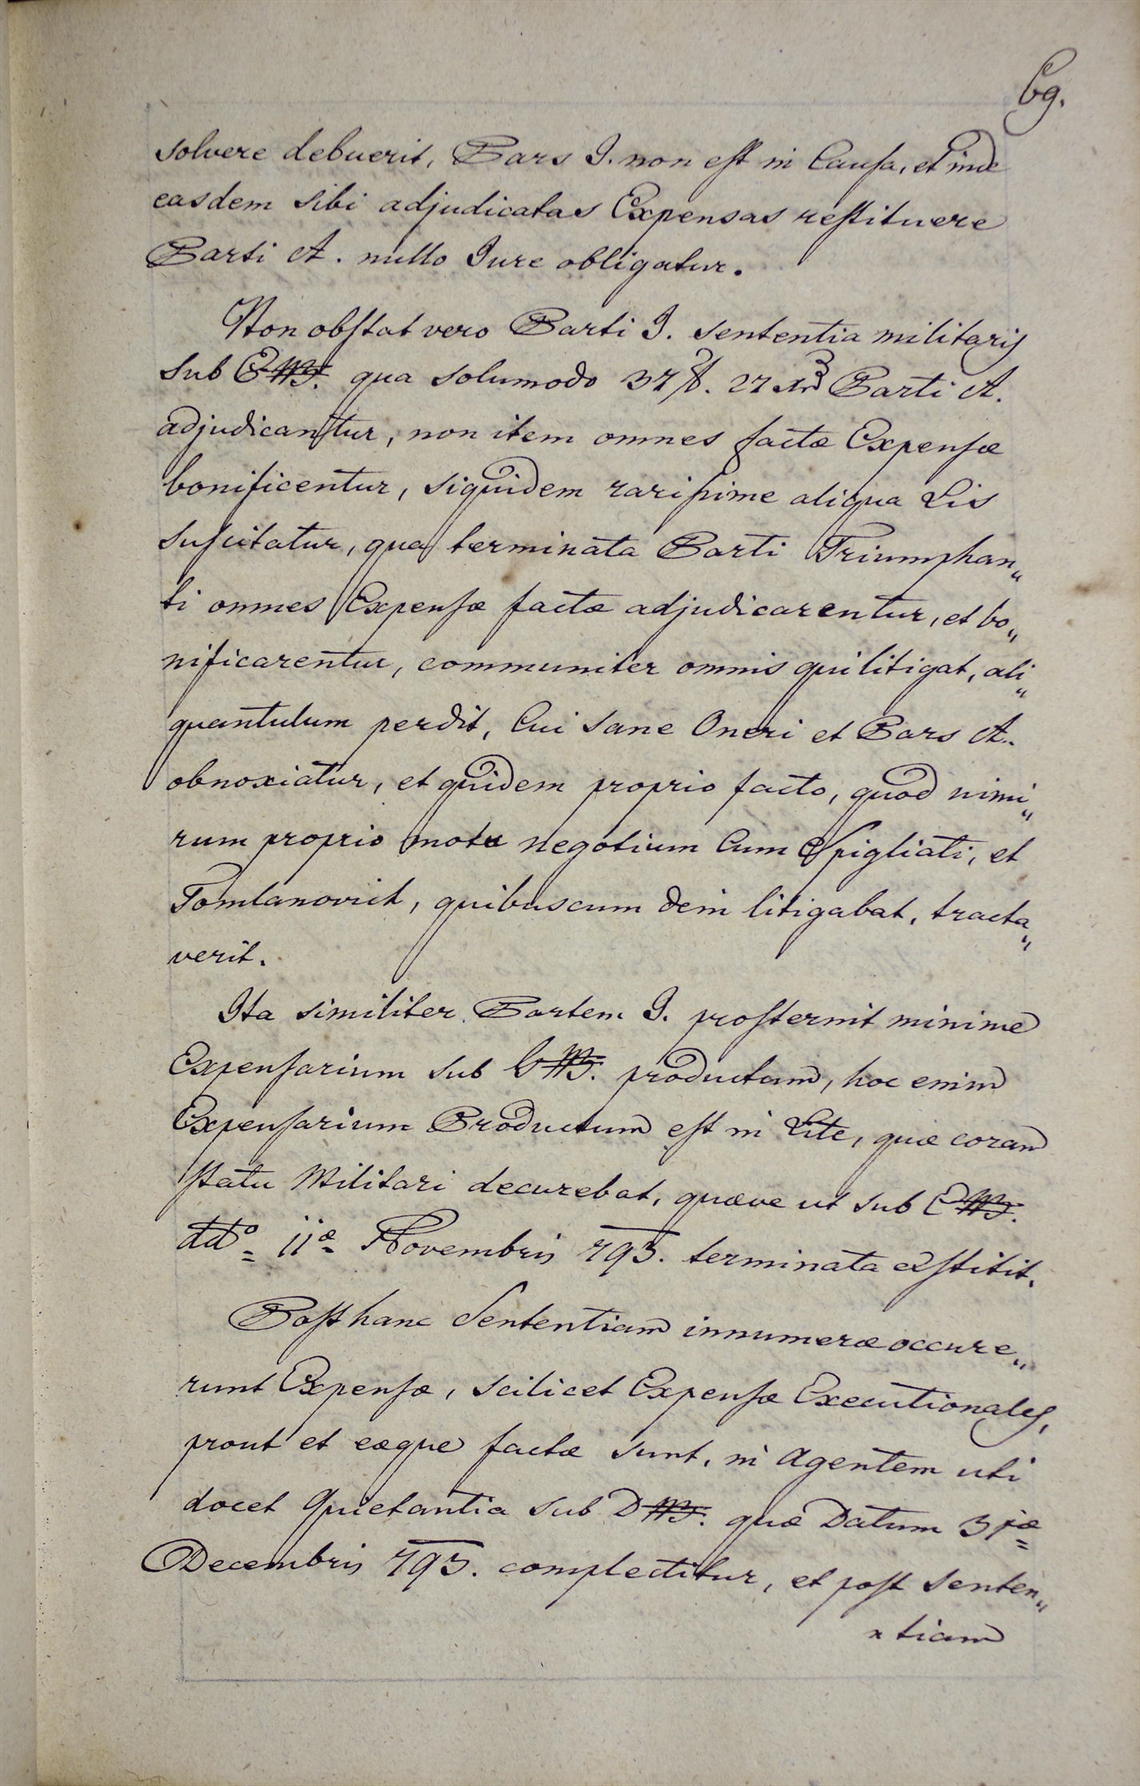 69.
solvere debuerit, Pars I. non est in Causa, et inde
easdem sibi adjudicatas Expensas restituere
Parti A. nullo Jure obligatur.
Non obstat vero Parti I. sententia militaris
sub E qua solumodo 37 f. 27 xr Parti A.
adjudicantur, non item omnes factæ Expensæ
bonificentur, siquidem rarissime aliqua Lis
suscitatur, qua terminata Parti Triumphan„
ti omnes Expensæ factæ adjudicarentur, et bo„
nificarentur, communiter omnis qui litigat, ali„
quantulum perdit, Cui sane Oneri et Pars A.
obnoxiatur, et quidem proprio facto, quod nimi„
rum proprio motu negotium Cum Spigliati, et
Tomlanovich, quibuscum dein litigabat, tracta„
verit.
Ita similiter Partem I. prosternit minime
Expensarium sub productum, hoc enim
Expensarium Productum est in Lite, quæ coram
statu Militari decurebat, quæve ut sub E
ddo 11æ Novembris 793. terminata exstitit.
Post hanc Sententiam innumeræ occure„
runt Expensæ, scilicet Expensæ Executionales,
prout et eæque factæ sunt, in Agentem uti
docet Quietantia sub D quæ Datum 31æ
Decembris 793. complectitur, et post senten„
tiam